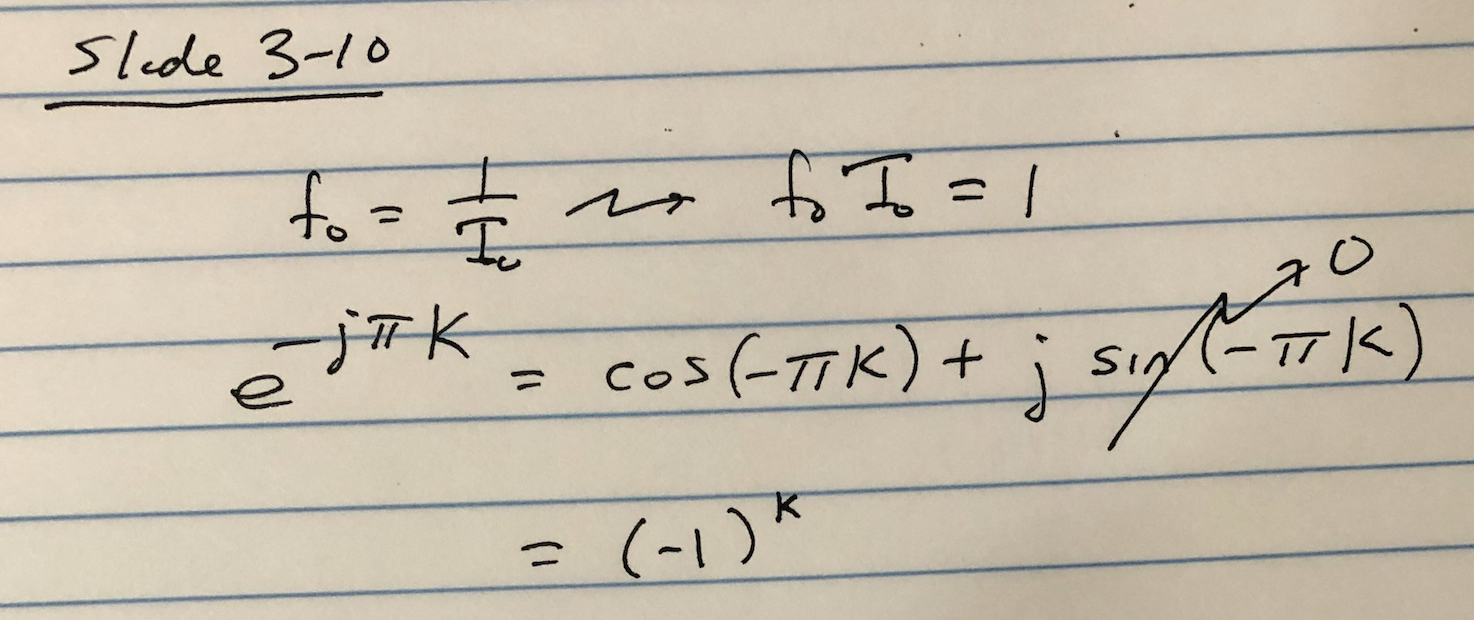 Slide 3-10
f₀ = 1/T₀ ⇝ f₀ T₀ = 1
e^(-jπk) = cos(-πk) + j sin(-πk) → 0
= (-1)^k